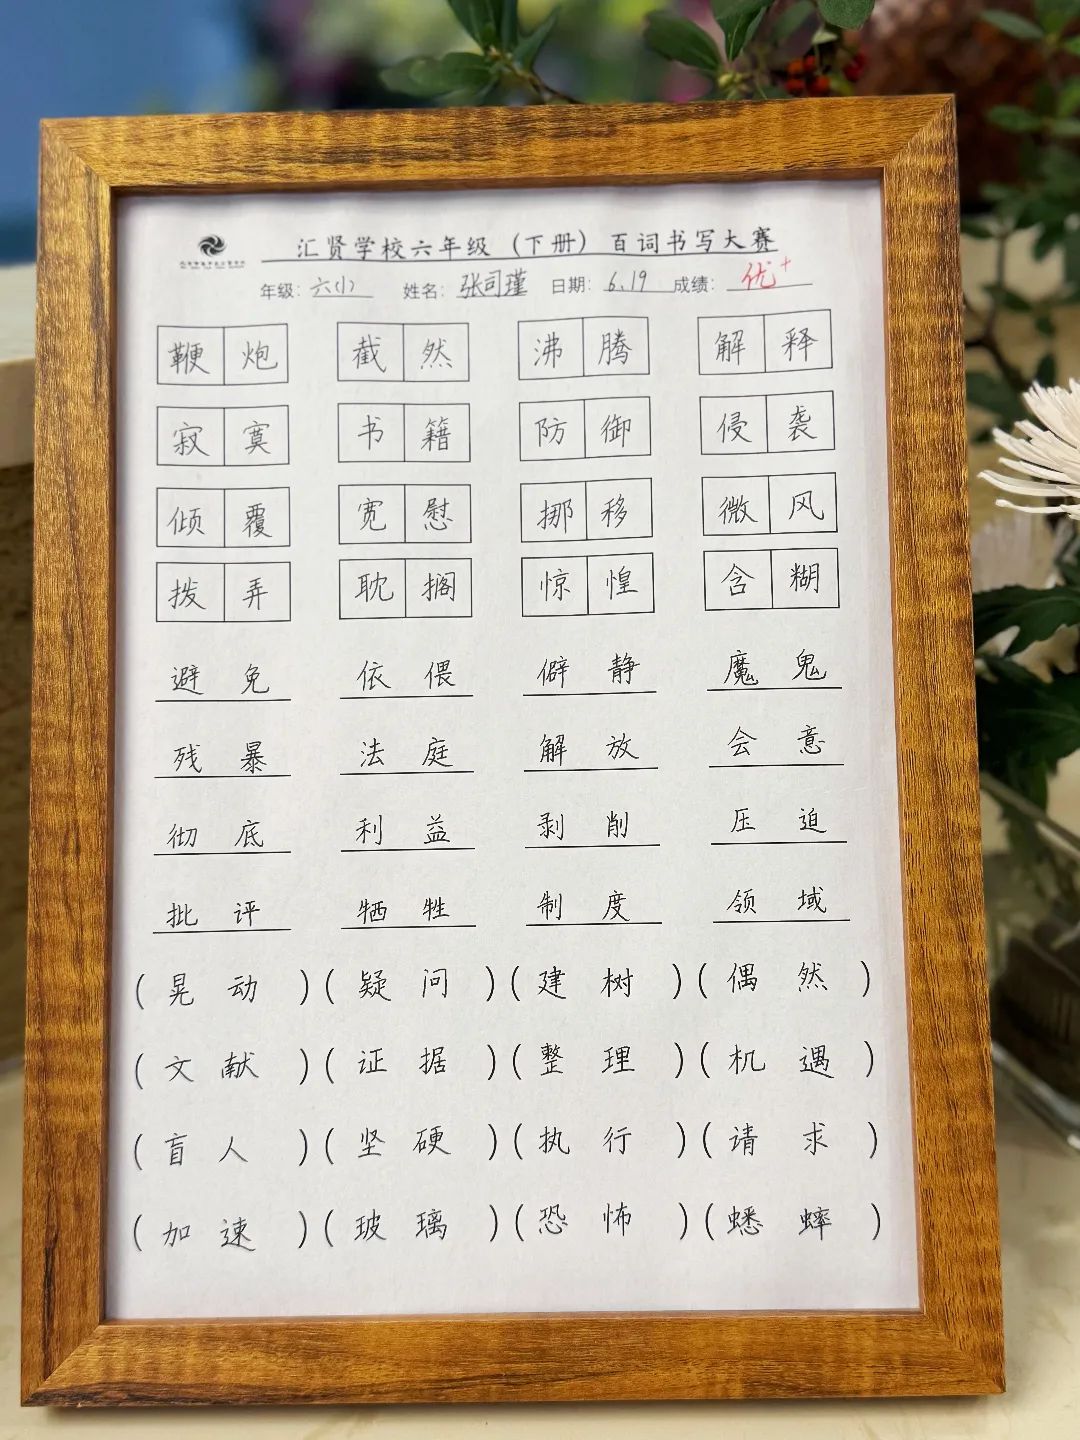 汇贤学校六年级（下册）百词书写大赛
年级：六（1） 姓名：张司瑾 日期：6.19 成绩：优+
鞭炮 截然 沸腾 解释
寂寞 书籍 防御 侵袭
倾覆 宽慰 挪移 微风
拨弄 耽搁 惊惶 含糊
避免 依偎 僻静 魔鬼
残暴 法庭 解放 会意
彻底 利益 剥削 压迫
批评 牺牲 制度 领域
（晃动）（疑问）（建树）（偶然）
（文献）（证据）（整理）（机遇）
（盲人）（坚硬）（执行）（请求）
（加速）（玻璃）（恐怖）（蟋蟀）